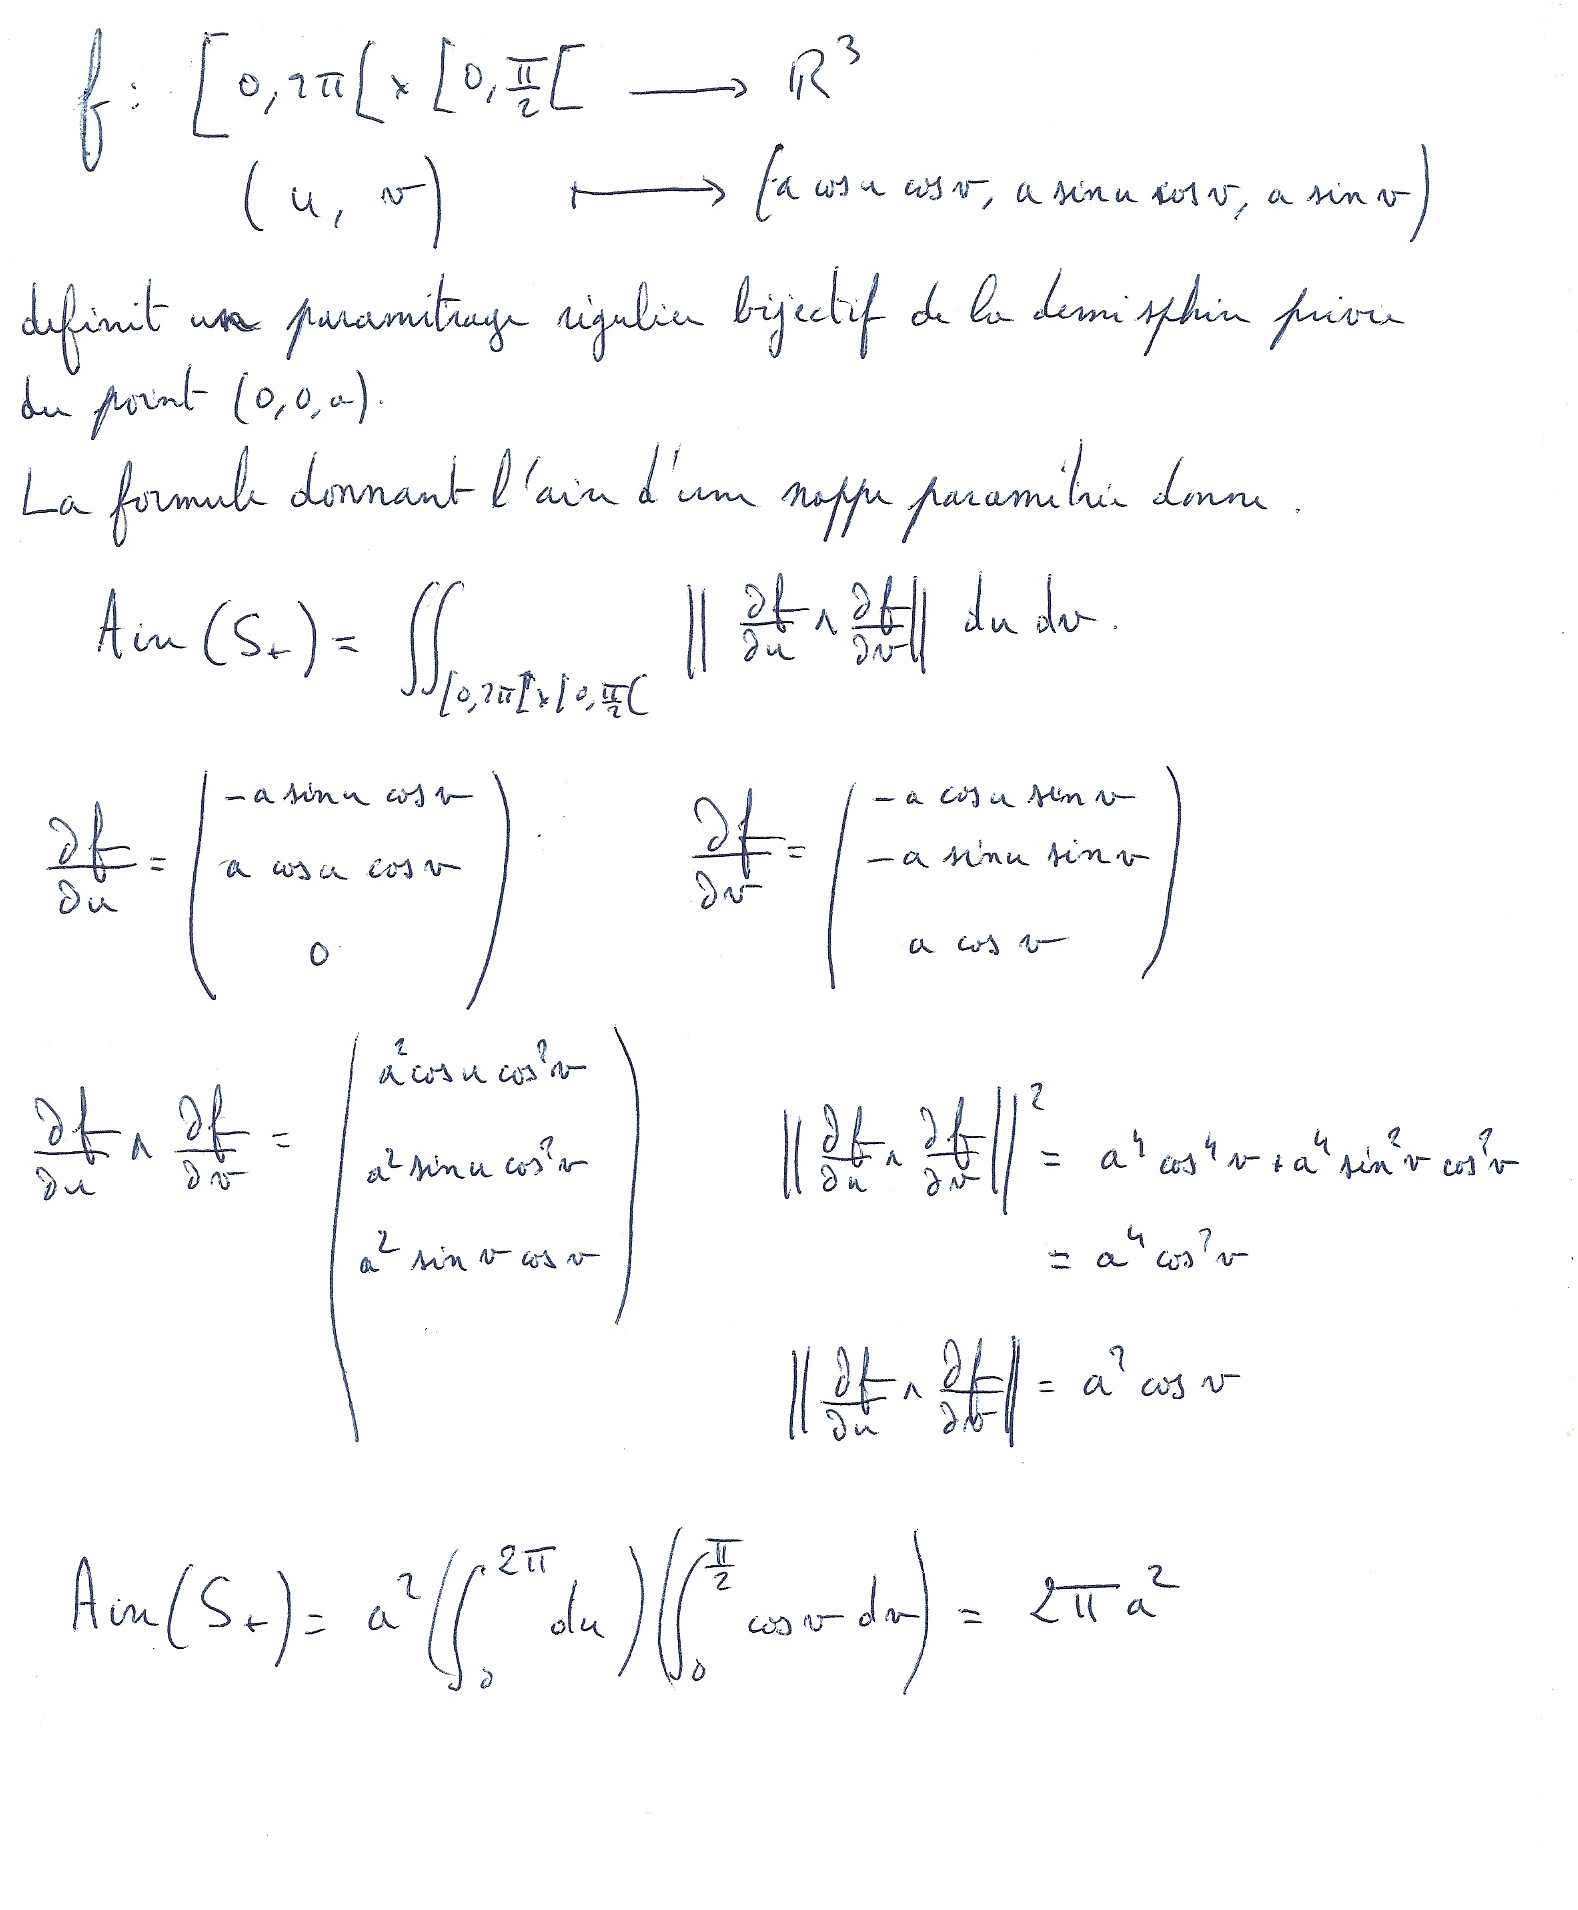 f : [0, 2π[ × [0, π/2[ ⟶ ℝ³
(u, v) ⟼ (a cos u cos v, a sin u cos v, a sin v)
définit un paramétrage régulier bijectif de la demi sphère privée
du point (0,0,a).
La formule donnant l'aire d'une nappe paramétrée donne.
Aire(S₊) = ∬_{[0,2π[×[0,π/2[} ‖ ∂f/∂u ∧ ∂f/∂v ‖ du dv.
∂f/∂u = ( -a sin u cos v ; a cos u cos v ; 0 ) ∂f/∂v = ( -a cos u sin v ; -a sin u sin v ; a cos v )
∂f/∂u ∧ ∂f/∂v = ( a² cos u cos² v ; a² sin u cos² v ; a² sin v cos v ) ‖ ∂f/∂u ∧ ∂f/∂v ‖² = a⁴ cos⁴ v + a⁴ sin² v cos² v
= a⁴ cos² v
‖ ∂f/∂u ∧ ∂f/∂v ‖ = a² cos v
Aire(S₊) = a² ( ∫₀^{2π} du ) ( ∫₀^{π/2} cos v dv ) = 2π a²